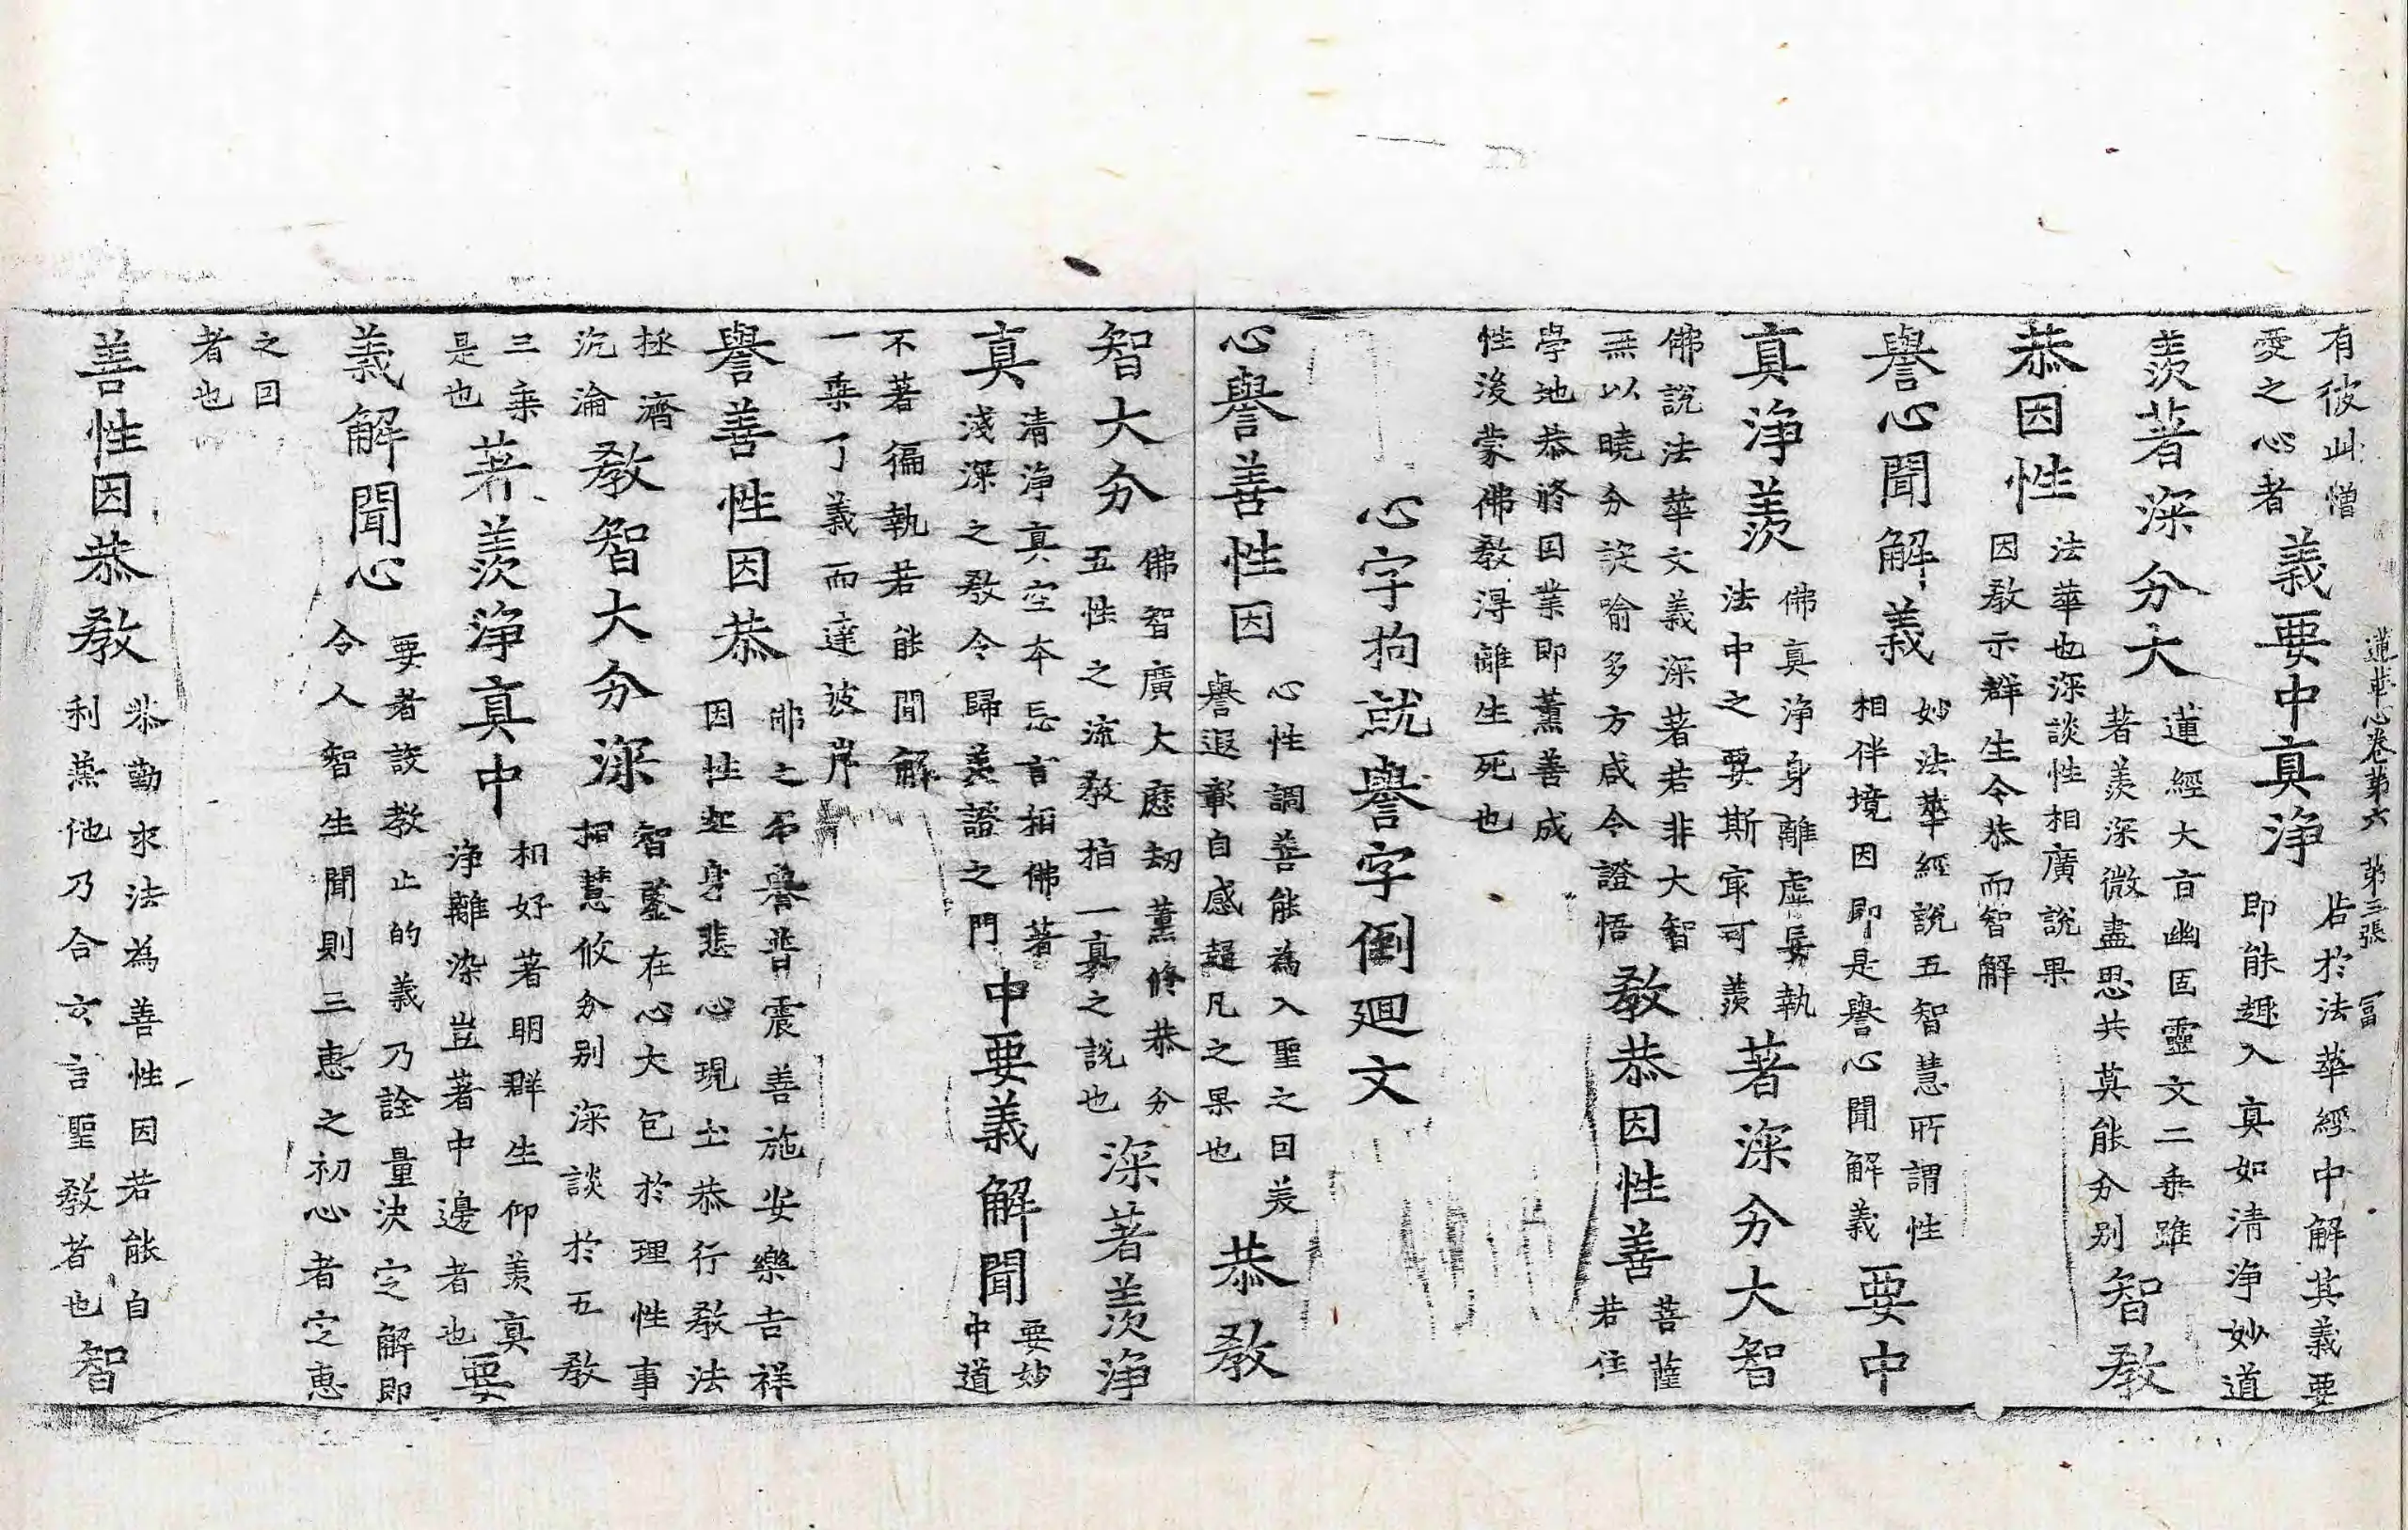 蓮華心卷第六 第三張 冨
有彼此憎
愛之心者
義要中真淨
於法華經中解其義要
即能趣入真如清淨妙道
羨著深分大
蓮經大旨幽靈文二乘雖
著羨深微盡思共莫能分别
智教
恭因性
法華也深談性相廣說果
因教示群生令恭而智解
譽心聞解義
妙法華經說五智慧所謂性
相伴境因即是譽心聞解義
要中
真淨羨
佛真淨身離虛妄執
法中之要斯寀可羨
著深分大智
佛說法華文義深著若非大智
無以曉分喻多方咸令證悟
教恭因性善
菩薩
若住
學地恭修因業即薰善成
性後蒙佛教淂離生死也
心字拘就譽字倒廻文
心譽善性因
心性調善能為入聖之因美
譽遐彰自感超凡之果也
恭教
智大分
佛智廣大歷劫薰修恭分
五性之流教指一真之說也
深著羨淨
真
清淨真空本忘言相佛著
淺深之教令歸羨證之門
中要義解聞
要妙
中道
不著徧執若能聞解
一乘了義而達彼岸
譽善性因恭
佛之名譽普震善施安樂吉祥
因性起身悲心現土恭行教法
拯濟
沉淪
教智大分深
智鑒在心大包於理性事
相慧攸分别深談於五教
三乘
是也
著羨淨真中
相好著明群生仰羨真
淨離染豈著中邊者也
要
義解聞心
要者設教止的義乃詮量決定解即
令人智生聞則三惠之初心者定惠
之因
者也
善性因恭教
恭勤求法為善性因若能自
利無他乃合玄言聖教者也
智